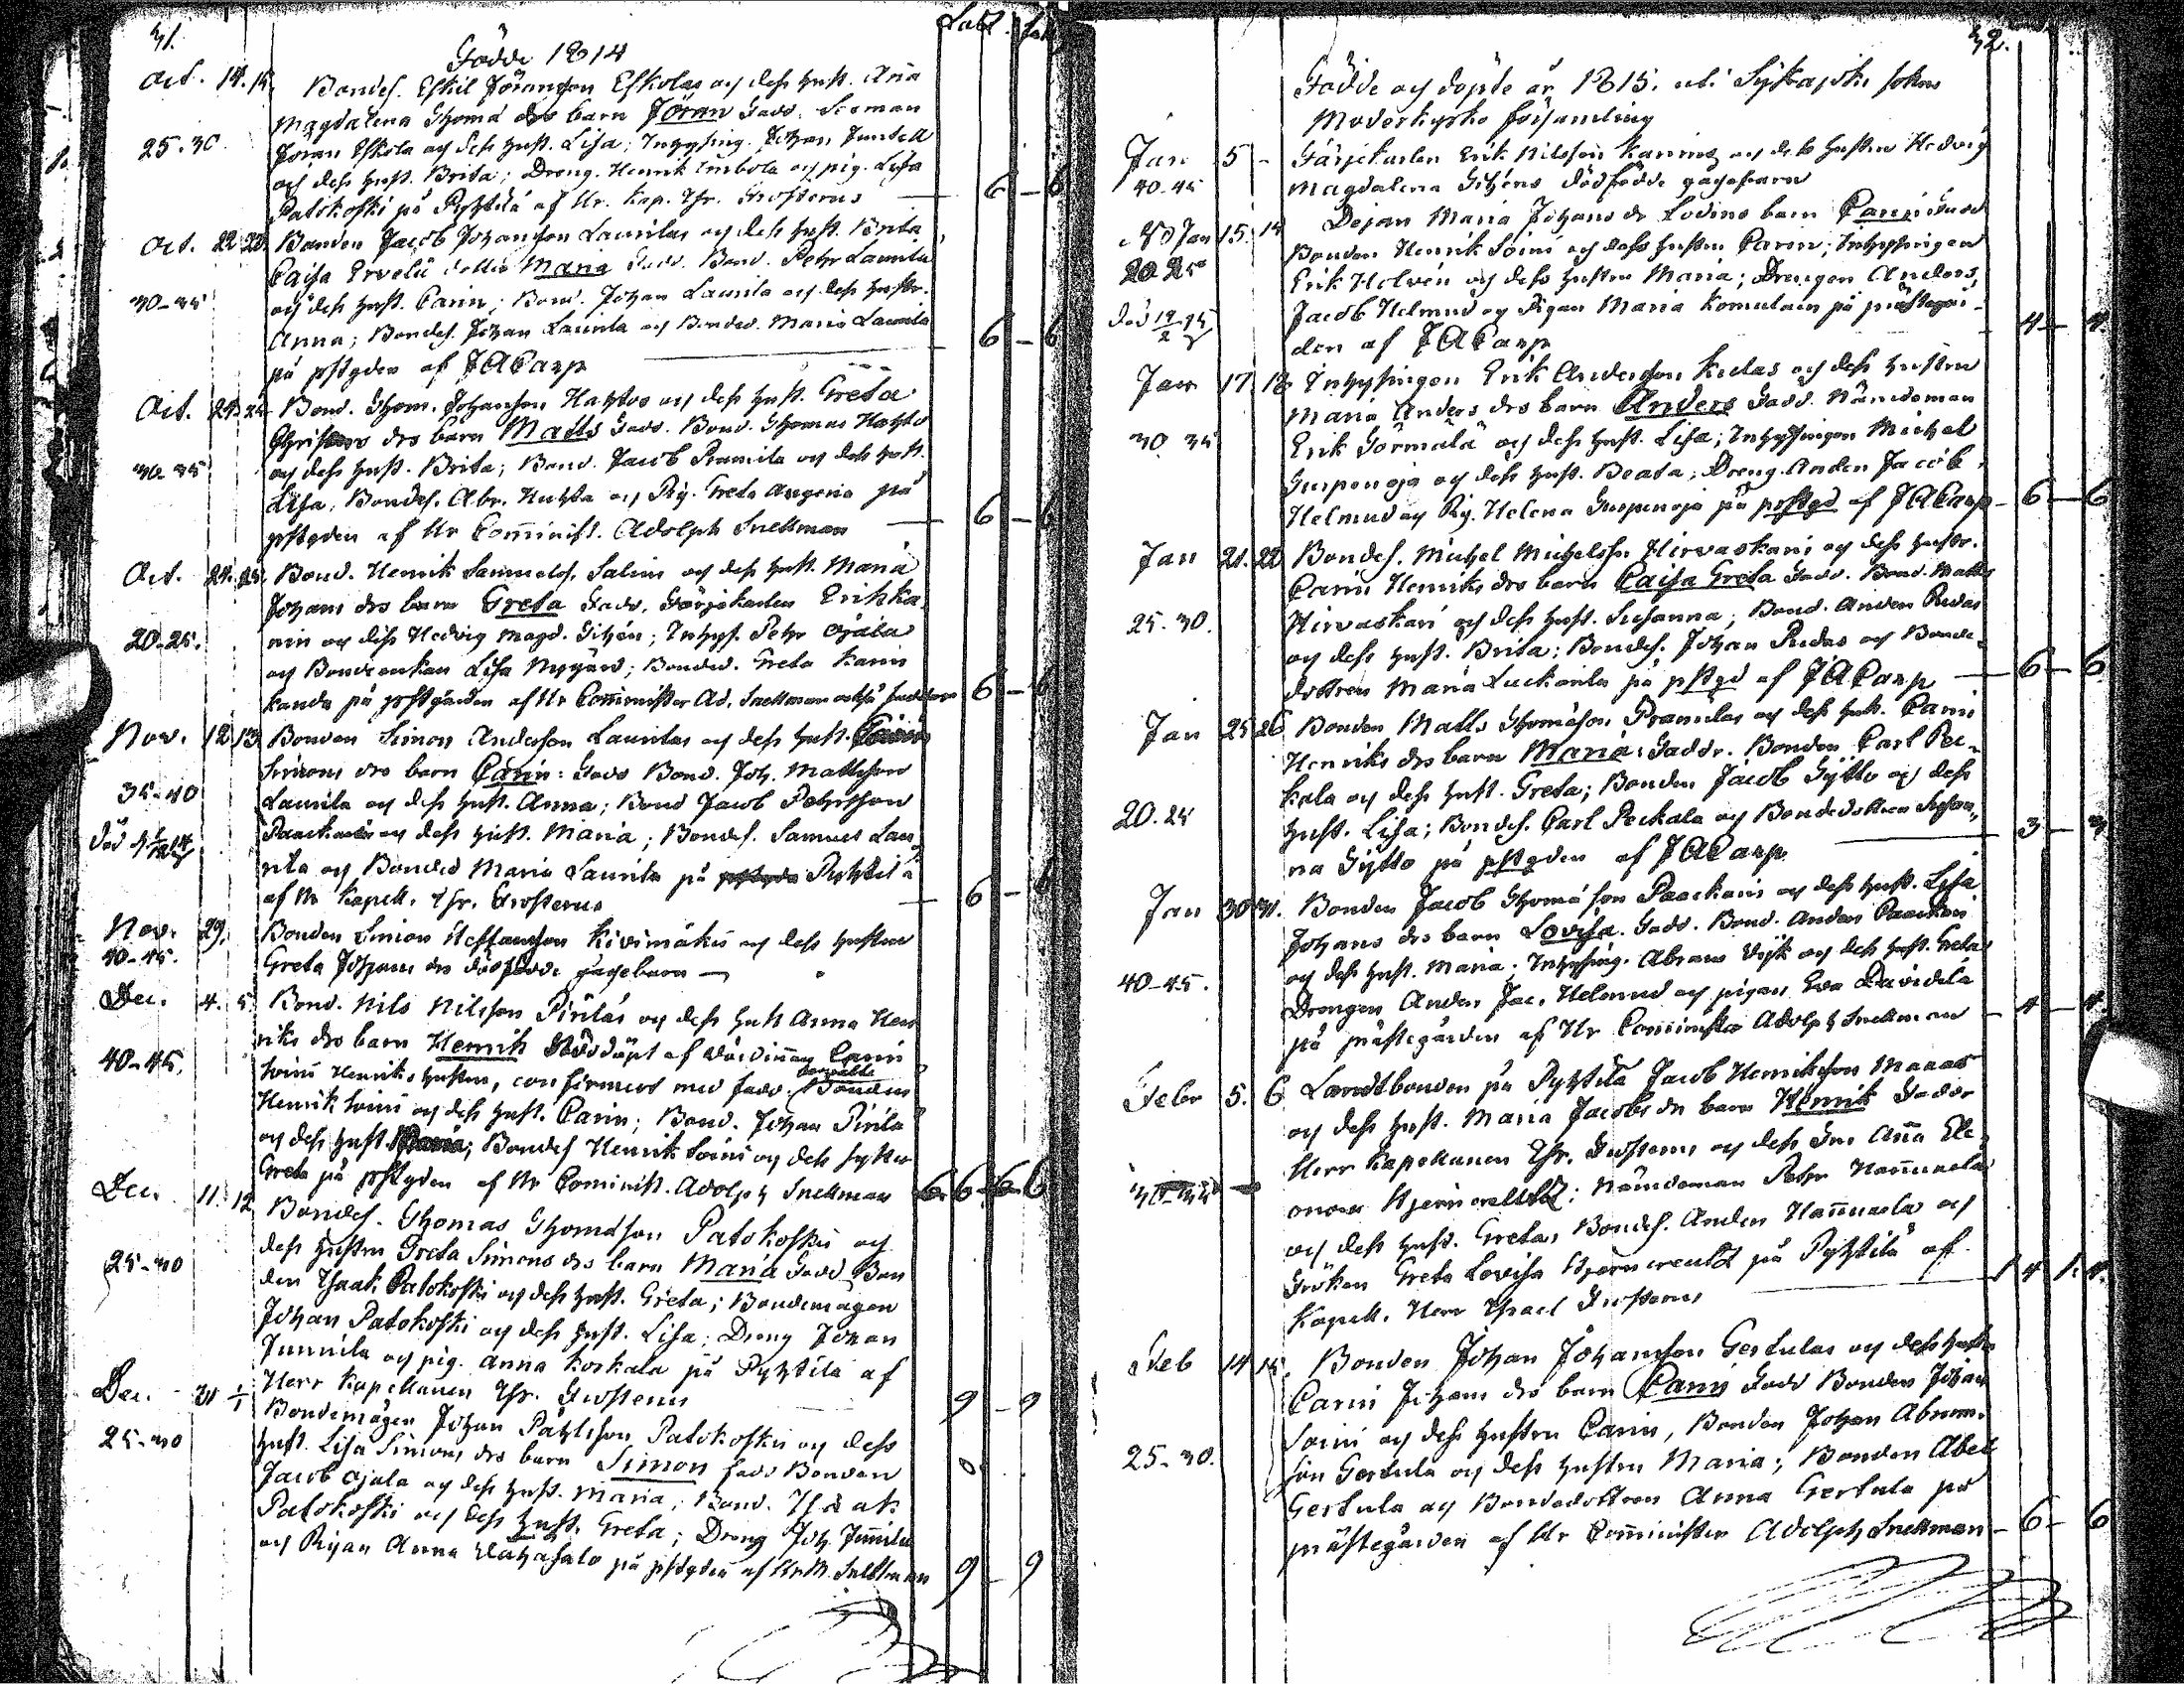 31.
Födde 1814
Oct. 14. 15. Bondes. Eskil Jöransson Eskolas och dess hust. Ana
Magdalena Thoma drs barn Jöran Fadd.
25-30. Jöran Eskola och dess hust. Lisa; Inhysing. Johan Junkell
och dess hust. Brita; Dreng. Henrik och pig. Lisa
Patokoski på Pyhtilä af Hr. Kap. Isr.
6 - 6
Oct. 22 23. Bonden Jacob Johansson Launilas och dess hust. Brita
Caisa Ervelä dotter Maria Fadd. Bond. Petr Launila
30-35 och dess hust. Carin; Bond. Johan Launila och dess hustr.
Anna; Bondes. Johan Launila och Bonded. Maria Launila
på pstgden af JACarp
6 - 6
Oct. 24 Bond. Thom. Johansson Hahtos och dess hust. Greta
drs barn Matts Fadd. Bond. Thomas Hahto
30-35 och dess hust. Brita; Bond. Jacob Pramila och dess hust.
Lisa, Bondes. Abr. Huhta och Pig. Greta Angeria på
pstgden af Hr Cominist. Adolph Snellman
6 - 6
Oct. 24. 25. Bond. Henrik Samuels. Salmis och dess hust. Maria
Johans drs barn Greta Fadd. Färjekarlen Erik Ka
20-25. nin och dess Hedvig Magd. Gitzén; Inhys. Petr Ojala
och Bondeenkan Lisa Nygård; Bonded. Greta Kanis
kanda på pstgården af Hr Comminister Ad. Snellman
6 - 6
Nov. 12 13 Bonden Simon Andersson Launilas och dess hust. Carin
Simons drs barn Carin: Fadd Bond. Joh. Mattsson
35-40 Launila och dess hust. Anna; Bond Jacob Pehrsson
Paackari och dess hust. Maria; Bondes. Samuel Lau
nila och Bonded Maria Launila på Pyhtilä
af Hr Kapell. Isr.
6 - 6
Nov. 29. Bonden Simon Steffansson Kivimäkis och dess hustru
40-45. Greta Johans drs dödfödde gossebarn
Dec. 4. 5. Bond. Nils Nilsson Pirilas och dess hust Anna Hen
riks drs barn Henrik Nöddöpt af värdinnan Carin
40-45. Soini Henriks hustru, confirmerad med fadd. Bonden
Henrik Soini och dess hust. Carin; Bond. Johan Pirila
och dess hust. Maria; Bondes Henrik Soini och dess syster
Greta på pstgden af Hr Cominist. Adolph Snellman
6 - 6
Dec. 11. 12 Bondes. Thomas Thomasson Patokoskis och
dess hustru Greta Simons drs barn Maria Fadd Bon
25-30 den Isaak Patokoski och dess hust. Greta; Bondemågen
Johan Patokoski och dess hust. Lisa; Dreng Johan
Junnila och pig. Anna Koskala på Pyhtilä af
Herr Kapellanen Isr.
9 - 9
Dec. 31 1/1 Bondemågen Johan Påhlsson Patokoskis och dess
25-30 hust. Lisa Simons drs barn Simon fadd Bonden
Jacob Ojala och dess hust. Maria; Bond. Isaak
Patokoski och dess hust. Greta; Dreng Joh. Junnila
och Pigan Anna Vähäsalo på pstgden af Hr M. Snellman
9 - 9
32.
Födde och döpte år 1815. uti Sykajoki sokns
Moderkyrko församling
Jan 5 - Färjekarlen Erik Nilsson Kanins och dess hustru Hedvig
40-45 Magdalena Gitzéns dödfödde gossebarn
Jan 15. Dejan Maria Johans dr Lodins barn Carin Fadd
Bonden Henrik Soini och dess hustru Carin; Inhysingen
20 25 Erik Holvén och dess hustru Maria; Drengen Anders
död 19/2 15 Jacob Helmud och Pigan Maria Komulain på prästegår-
den af JACarp
4 - 4.
Jan 17 18 Inhysingen Erik Andersson Kedas och dess hustru
Maria Anders drs barn Anders Fadd. Nämdeman
30 35 Erik Törmälä och dess hust. Lisa; Inhysingen Michel
Guspenoja och dess hust. Beata; Dreng. Anders Jacob
Helmud och Pig. Helena Guspenoja på pstgd af JACarp
6 - 6
Jan 21. 22 Bondes. Michel Michelss. Hirvaskaris och dess hustr.
Carin Henriks drs barn Caisa Greta Fadd. Bond. Matts
25-30. Hirvaskari och dess hust. Susanna; Bond. Anders Rudas
och dess hust. Brita; Bondes. Johan Rudas och Bonde-
dottren Maria Luckarila på pstgd af JACarp
6 - 6
Jan 25 26 Bonden Matts Thomasson Pramilas och dess hust. Carin
Henriks drs barn Maria: Faddr. Bonden Carl Pec-
kala och dess hust. Greta; Bonden Jacob Sytto och dess
20.25 hust. Lisa; Bondes. Carl Peckala och Bondedottren Susan-
na Sytto på pstgden af JACarp
3 - 3
Jan 30 31. Bonden Jacob Thomasson Paackaris och dess hust. Lisa
Johans drs barn Lovisa. Fadd. Bond. Anders Paackari
och dess hust. Maria; Inhysing. Abram och dess hust. Greta
40-45. Drengen Anders Jac. Helmud och pigan Eva Davidila
på prästegården af Hr Comminister Adolph Snellman
4 - 4.
Febr 5. 6 Landtbonden på Pyhtilä Jacob Henriksson Maaas
och dess hust. Maria Jacobs dr barn Henrik Faddr
Herr Kapellanen Isr. och dess Fru Anna Ele-
onora; Nämdeman Petr Hannuela
och dess hust. Greta, Bondes. Anders Hannuela och
Fröken Greta Lovisa på Pyhtilä af
Kapell. Herr Israel
1 4 1. 4.
Feb 14 15. Bonden Johan Johansson Gertulas och dess hustru
Carin Johans drs barn Carin Fadd Bonden Johan
Soini och dess hustru Carin, Bonden Johan Abram-
25-30. son Gertula och dess hustru Maria; Bonden Abel
Gertula och Bondedottren Anna Gertula på
prästegården af Hr Comminister Adolph Snellman
6 - 6